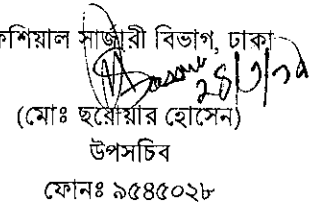 কশিয়াল সার্জারী বিভাগ, ঢাকা
(মোঃ ছরোয়ার হোসেন)
উপসচিব
ফোনঃ ৯৫৪৫০২৮